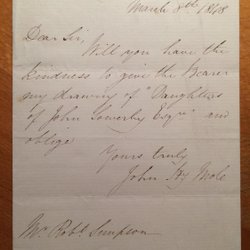 March 8th 1848
Dear Sir,
Will you have the
kindness to give the Bearer
my drawing of "Daughters
of John Sowerby Esqre" and
oblige
Yours truly
John Hy Mole
Mr Robt. Simpson